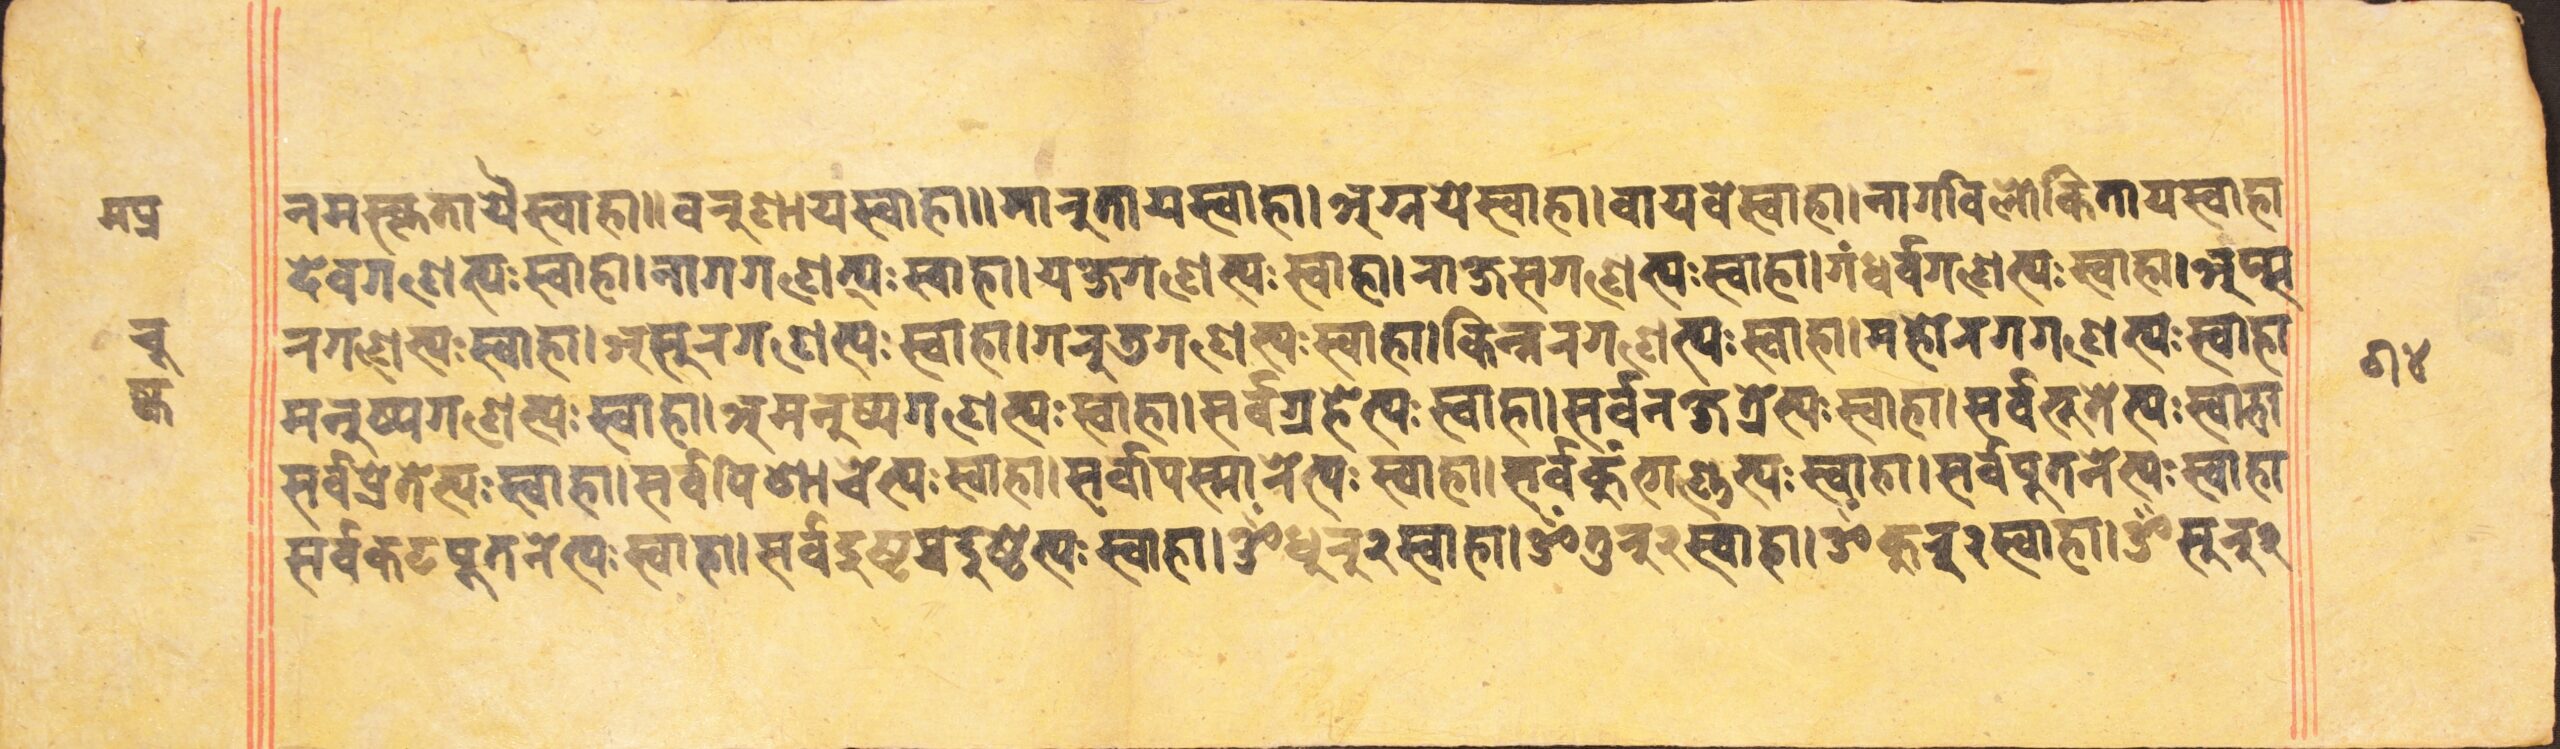 मप्र
नमस्कृतायैस्वाहा॥वरुणायस्वाहा॥मारुतायस्वाहा।अग्नयेस्वाहा।वायवेस्वाहा।नागविलोकितायस्वाहा
देवगणेभ्यःस्वाहा।नागगणेभ्यःस्वाहा।यक्षगणेभ्यःस्वाहा।राक्षसगणेभ्यःस्वाहा।गंधर्वगणेभ्यःस्वाहा।अप्स
रगणेभ्यःस्वाहा।असुरगणेभ्यःस्वाहा।गरुडगणेभ्यःस्वाहा।किन्नरगणेभ्यःस्वाहा।महोरगगणेभ्यःस्वाहा
मनुष्यगणेभ्यःस्वाहा।अमनुष्यगणेभ्यःस्वाहा।सर्वग्रहेभ्यःस्वाहा।सर्वनक्षत्रेभ्यःस्वाहा।सर्वभूतेभ्यःस्वाहा
सर्वप्रेतेभ्यःस्वाहा।सर्वपिशाचेभ्यःस्वाहा।सर्वापस्मारेभ्यःस्वाहा।सर्वकुंभाण्डेभ्यःस्वाहा।सर्वपूतनेभ्यःस्वाहा
सर्वकटपूतनेभ्यःस्वाहा।सर्वदुष्टप्रदुष्टेभ्यःस्वाहा।ॐधुरु२स्वाहा।ॐतुरु२स्वाहा।ॐकुरु२स्वाहा।ॐसुरु२